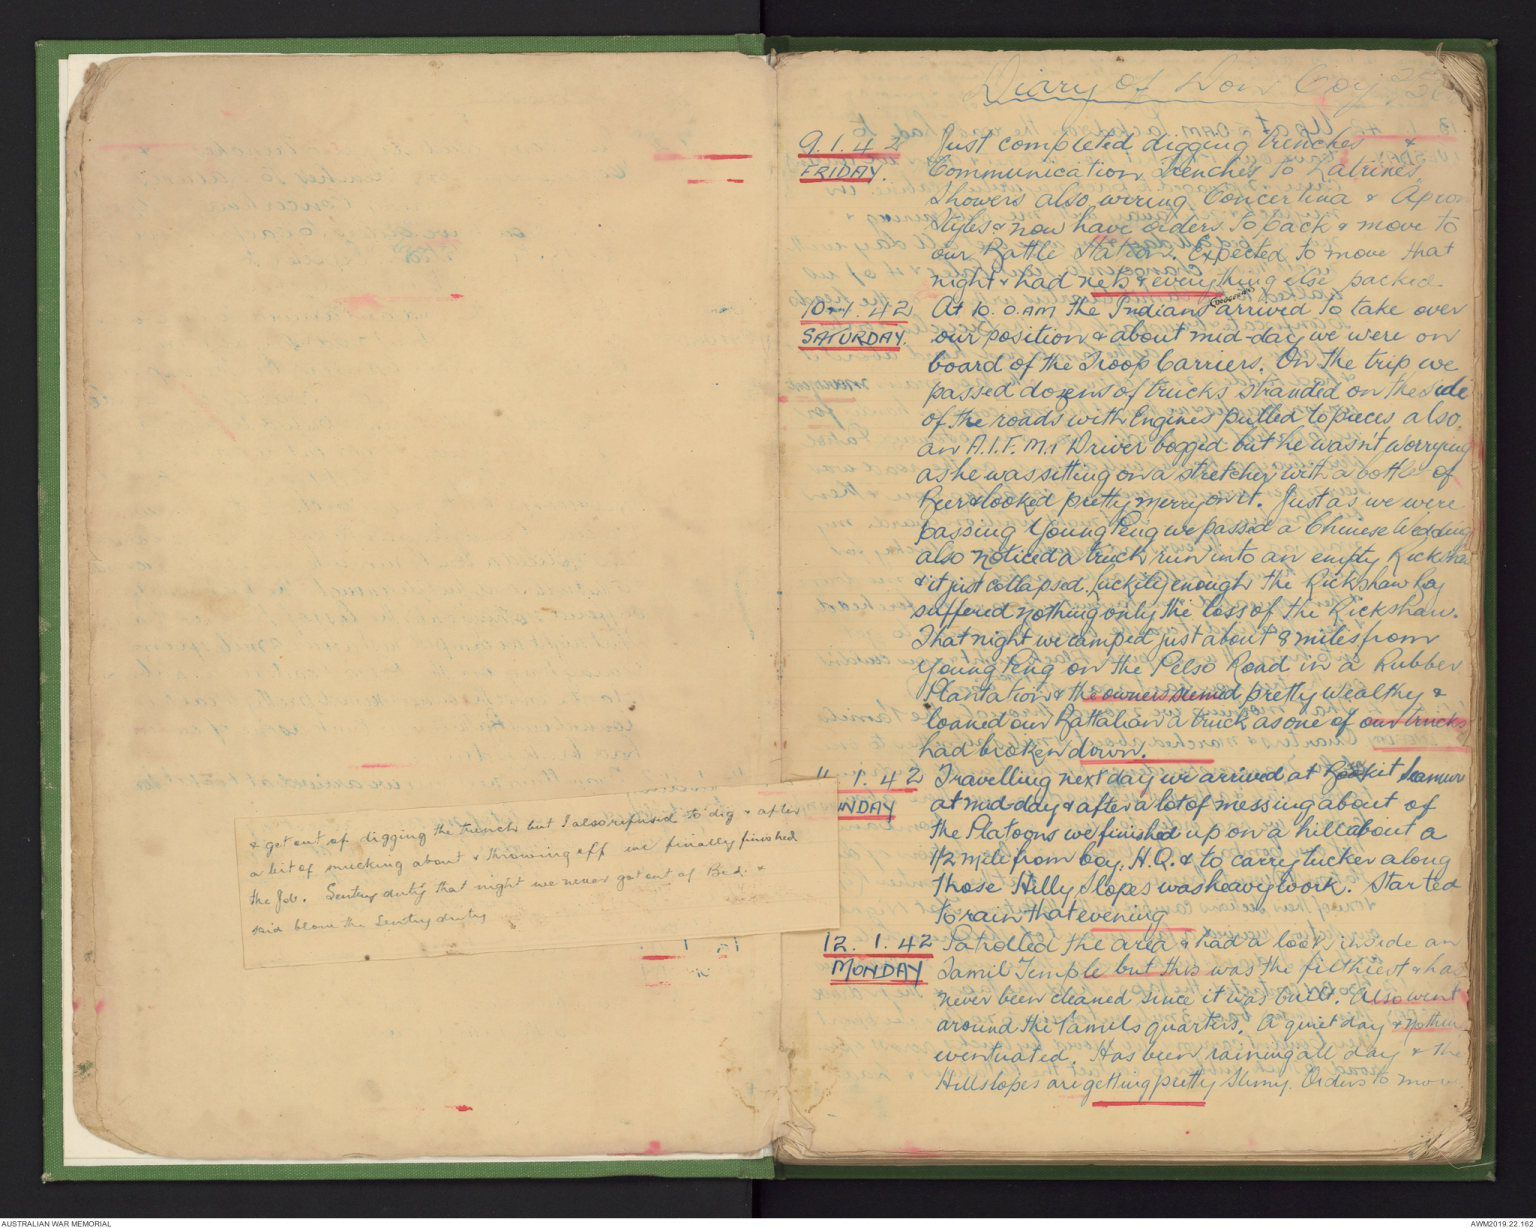 & get out of digging the trench but I also refused to dig & after
a bit of mucking about & throwing off we finally finished
the Job. Sentry duty that night we never got out of Bed. &
said blow the Sentry duty
Diary of Don Coy
9.1.42 Just completed digging trenches &
FRIDAY. Communication Trenches to Latrines,
Showers also wiring Concertina & Apron
Styles & now have orders to pack & move to
our Battle Station. Expected to move that
night & had nets & everything else packed.
10.1.42 At 10.0.AM the Indians arrived to take over
SATURDAY. our position & about mid-day we were on
board of the Troop Carriers. On the trip we
passed dozens of trucks stranded on the side
of the roads with Engines pulled to pieces, also
an A.I.F. M.T Driver bogged but he wasn't worrying
as he was sitting on a stretcher with a bottle of
Beer & looked pretty merry on it. Just as we were
passing Young Peng we passed a Chinese Wedding
also noticed a truck run into an empty Rickshaw
& it just collapsed. Luckily enough the Rickshaw Boy
suffered nothing only the loss of the Rickshaw.
That night we camped just about 8 miles from
Young Peng on the Pelso Road in a Rubber
Plantation & the owners seemed pretty wealthy &
loaned our Battalian a truck as one of our trucks
had broken down.
11.1.42 Travelling next day we arrived at
NDAY at mid-day & after a lot of messing about of
the Platoons we finished up on a hill about a
1/2 mile from Coy. H.Q. & to carry tucker along
those Hilly slopes was heavy work. Started
to rain that evening
12.1.42 Patrolled the area & had a look inside an
MONDAY Tamil Temple but this was the filthiest & has
never been cleaned since it was built. Also went
around the Tamils quarters. A quiet day & nothing
eventuated. Has been raining all day & the
Hillslopes are getting pretty slimy. Orders to move
AUSTRALIAN WAR MEMORIAL
AWM2019.22.162